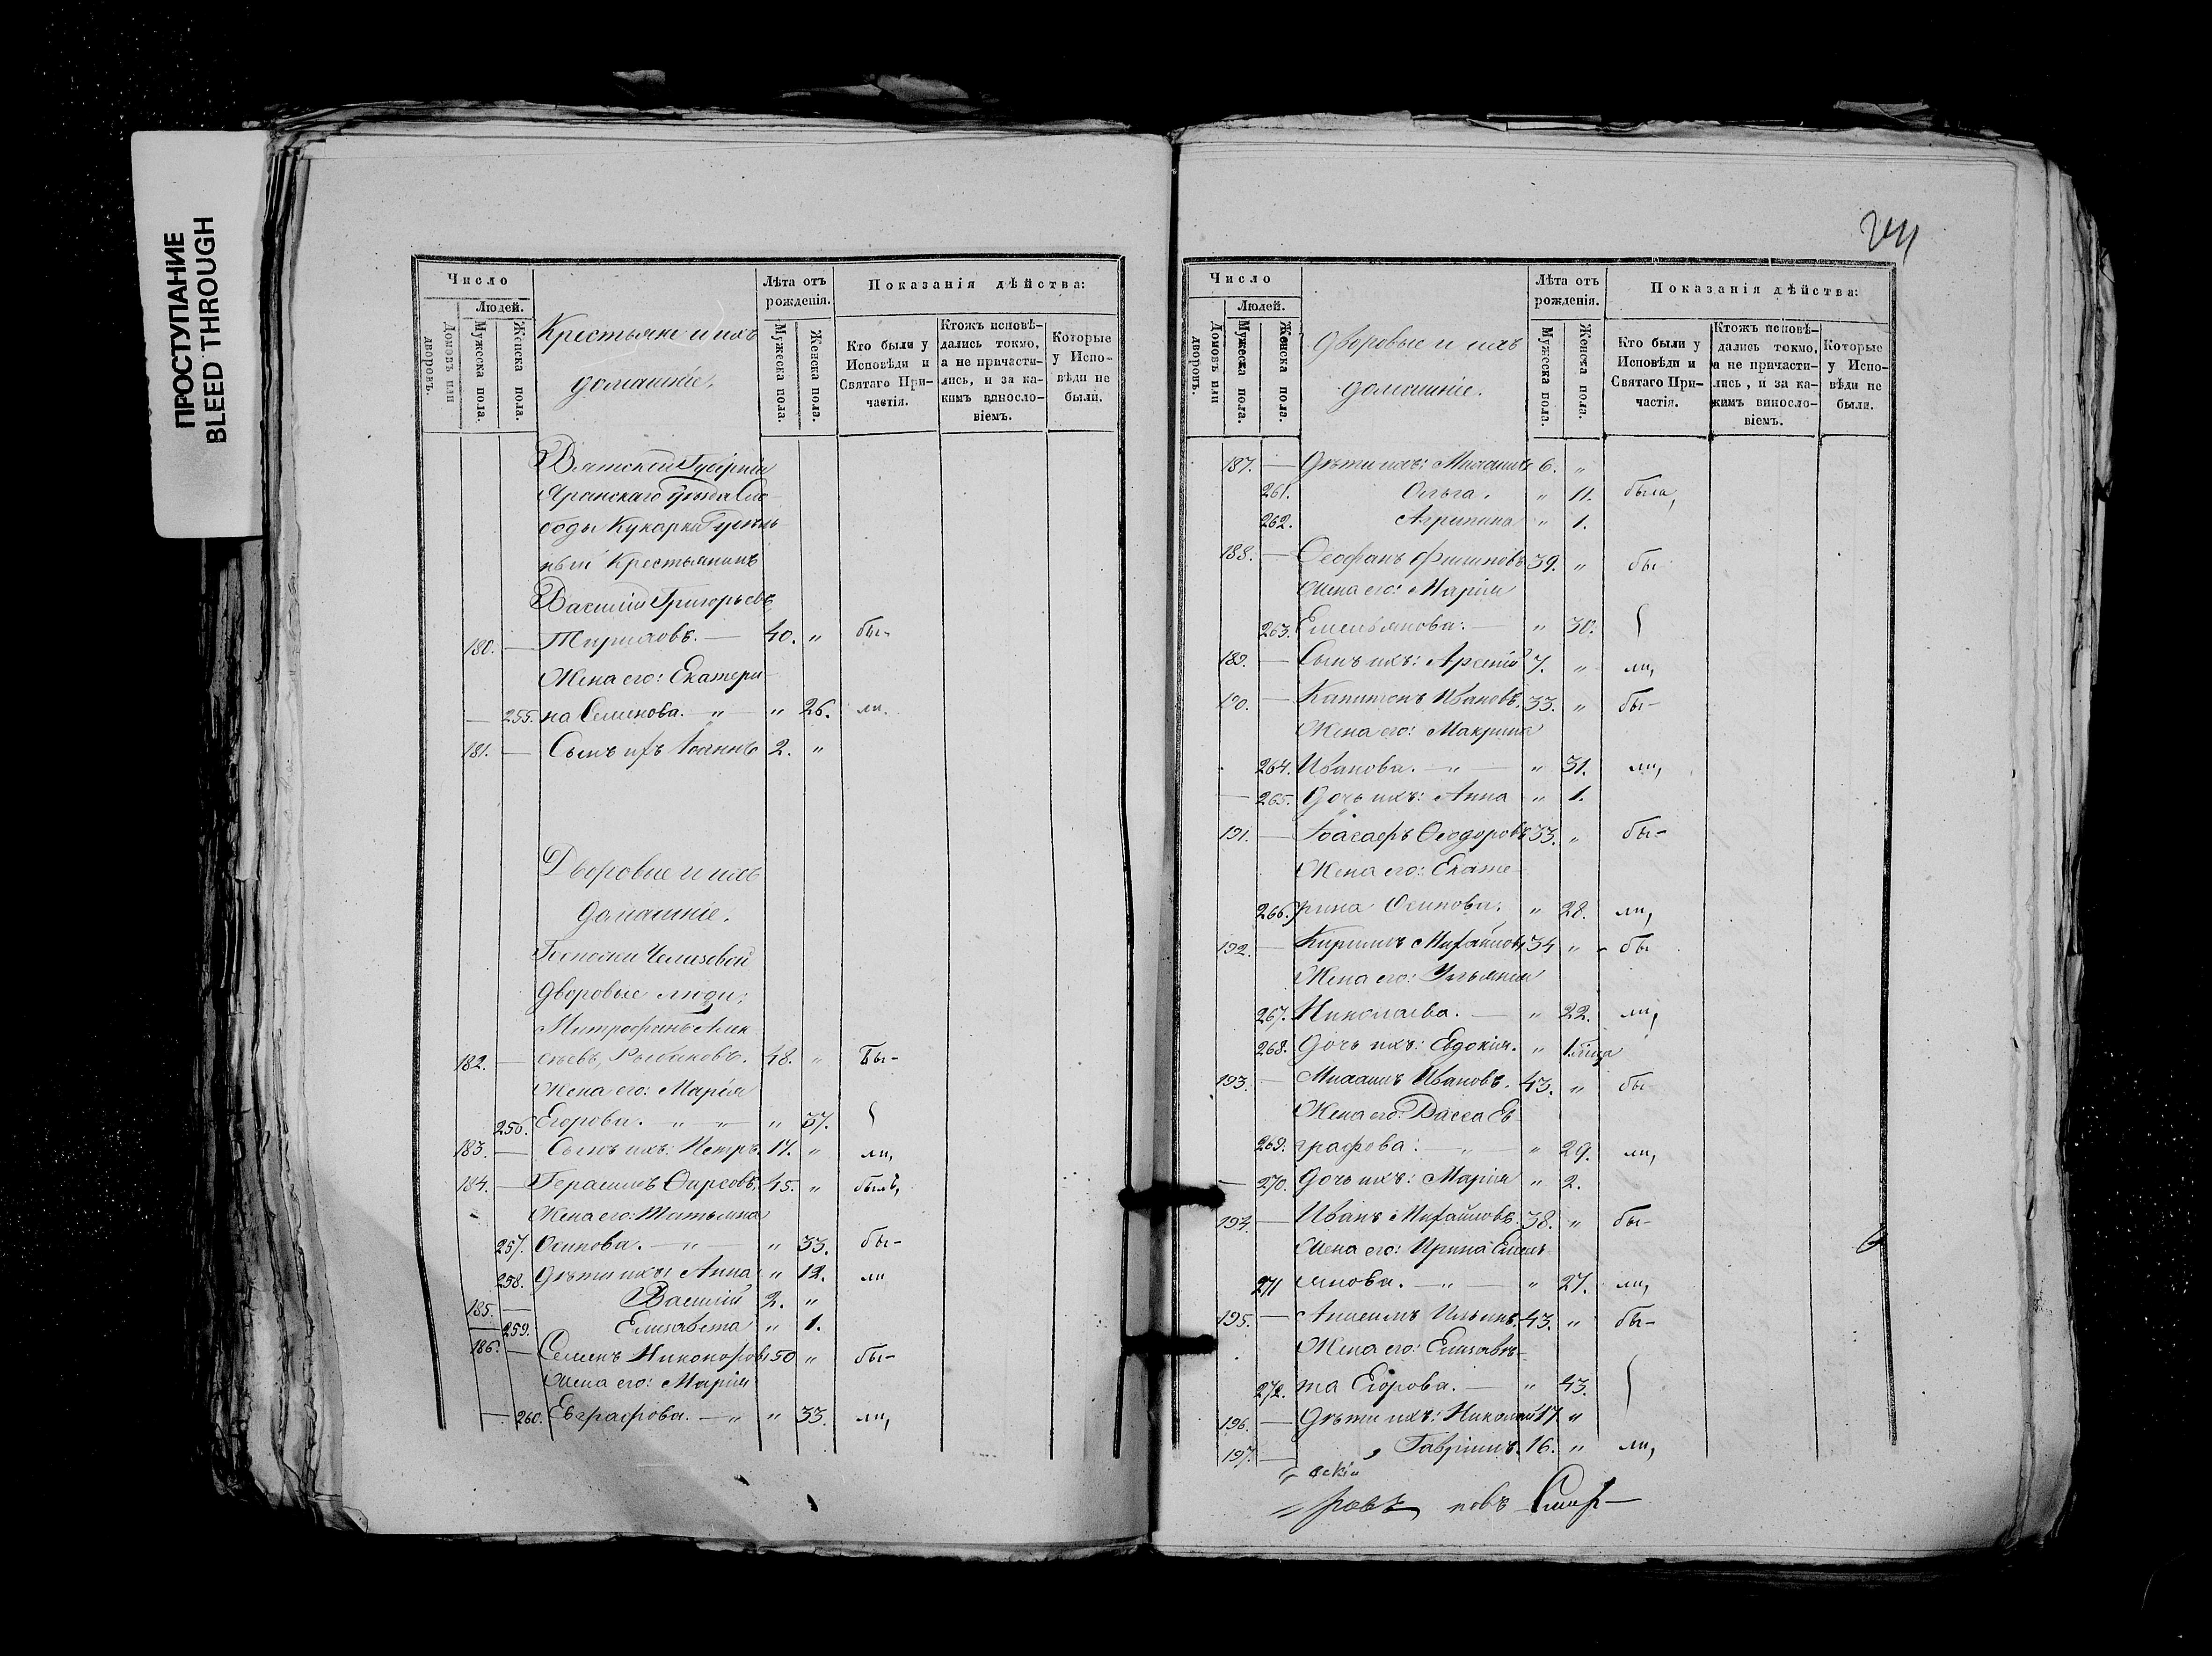 ПРОСТУПАНИЕ
BLEED THROUGH
Число
Людей.
Домовъ или дворовъ.
Мужеска пола.
Женска пола.
Крестьяне и ихъ
домашніе.
Лѣта отъ
рожденія.
Мужеска пола.
Женска пола.
Показанія дѣйства:
Кто были у
Исповѣди и
Святаго При-
частія.
Ктожъ исповѣ-
дались токмо,
а не причасти-
лись, и за ка-
кимъ винослo-
віемъ.
Которые
у Испо-
вѣди не
были.
Вятской Губерніи
Яранскаго Уѣзда Сло-
боды Кукарки
ный Крестьянинъ
Василій Григорьевъ
180. — — 40. " бы-
Жена его: Екатери-
— 255. на Семенова. — " — " 26. ли.
181. — Сынъ ихъ Іоаннъ 2. "
Дворовые и ихъ
домашніе.
Госпожи
дворовые люди:
Митрофанъ Алек-
182. — сѣевъ, Рыбаковъ. 48. " Бы-
Жена его: Марія
256. Егорова. — " — " — " 37.
183. — Сынъ ихъ: Петръ. 17. " ли,
184. — Герасимъ Ѳирсовъ. 45. " былъ,
Жена его: Татьяна
257. Осипова. — " — " 33. бы-
258. Дѣти ихъ: Анна " 12. ли
185. — Василій 2. "
— 259. Елизавета " 1.
186. — Семенъ Никоноровъ 50 " бы-
Жена его: Марія
— 260. Евграфова. — " " 33. ли,
Число
Людей.
Домовъ или дворовъ.
Мужеска пола.
Женска пола.
Дворовые и ихъ
домашніе.
Лѣта отъ
рожденія.
Мужеска пола.
Женска пола.
Показанія дѣйства:
Кто были у
Исповѣди и
Святаго При-
частія.
Ктожъ исповѣ-
дались токмо,
а не причасти-
лись, и за ка-
кимъ винослo-
віемъ.
Которые
у Испо-
вѣди не
были.
187. — Дѣти ихъ: Михаилъ 6. "
261. Ольга. " 11. была,
262. Агрипина " 1.
188. — Ѳеофанъ Филиповъ 39. " бы
Жена его: Марія
263. Емельянова: — " 30.
189. — Сынъ ихъ: Арсеній 7. " ли,
190. — Капитонъ Ивановъ. 33. " бы-
Жена его: Макрина
264. Иванова. — " — " 31. ли,
— 265. Дочь ихъ: Анна " 1.
191. — Іоасафъ Ѳеодоровъ 33. " бы-
Жена его: Екате-
266. рина Осипова. " 28. ли,
192. — Кирилъ Михайловъ 34 " - бы
Жена его: Ульянія
267. Николаева. — " 22. ли,
268. Дочь ихъ: Евдокія. "
193. — Михаилъ Ивановъ. 43. " бы
Жена его: Васса Ев-
269. графова: — " — " 29. ли,
— 270. Дочь ихъ: Марія " 2.
194. — Иванъ Михайловъ. 38. " бы-
Жена его: Ирина Емель-
271 янова. — " — " 27. ли,
195. — Анисимъ Ильинъ. 43. " бы-
Жена его: Елизаве-
272. та Егорова. — " 43.
196. — Дѣти ихъ: Николай 17. "
197. — " Гавріилъ. 16. " ли,